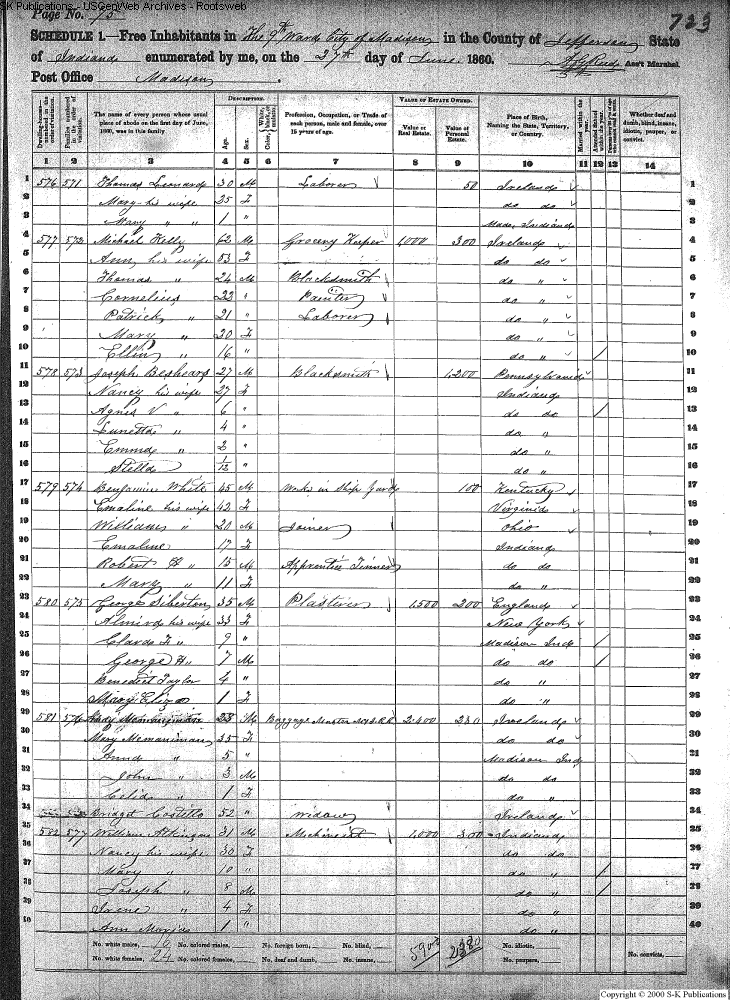 S-K Publications - USGenWeb Archives - Rootsweb
Page No. 75
723
SCHEDULE 1.—Free Inhabitants in The 9th Ward City of Madison in the County of Jefferson State
of Indiana enumerated by me, on the 27th day of June 1860. Ass't Marshal.
Post Office Madison.
DESCRIPTION. VALUE OF ESTATE OWNED.
The name of every person whose usual place of abode on the first day of June, 1860, was in this family
Age. Sex.
Profession, Occupation, or Trade of each person, male and female, over 15 years of age.
Value of Real Estate. Value of Personal Estate.
Place of Birth, Naming the State, Territory, or Country.
Whether deaf and dumb, blind, insane, idiotic, pauper, or convict.
1 2 3 4 5 6 7 8 9 10 11 12 13 14
1 576 571 Thomas Leonard 30 M Laborer 50 Ireland 1
2 Mary his wife 25 F do do 2
3 Mary " " 1 " Mad. Indiana 3
4 577 572 Michael Kelly 62 M Grocery Keeper 1,000 300 Ireland 4
5 Ann, his wife 53 F do do 5
6 Thomas " 24 M Blacksmith do " 6
7 Cornelius 22 " Painter do " 7
8 Patrick " 21 " Laborer do " 8
9 Mary " 20 F do " 9
10 Ellin " 16 " do " / 10
11 578 573 Joseph Beshears 27 M Blacksmith 1,200 Pennsylvania 11
12 Nancy his wife 27 F Indiana 12
13 Agnes V " 6 " do do / 13
14 Lunetta " 4 " do " 14
15 Emma " 2 " do " 15
16 Stella 1/12 " do " 16
17 579 574 Benjamin White 45 M Works in Ship Yard 100 Kentucky 17
18 Emaline his wife 42 F Virginia 18
19 William " 20 M Joiner Ohio 19
20 Emaline 17 F Indiana 20
21 Robert H " 15 M Apprentice Tinner do do 21
22 Mary " 11 F do " 22
23 580 575 George Siberton 35 M Plasterer 1,500 200 England 23
24 Almira his wife 33 F New York 24
25 Clara F " 9 " Madison Ind / 25
26 George H " 7 M do do / 26
27 Benedict Taylor 4 " do " 27
28 Mary Eliza 1 F do " 28
29 581 576 Andy Memaniman 28 M Baggage Master 2,400 Ireland 29
30 Mary Memaniman 35 F do do 30
31 Anna " 5 " Madison Ind 31
32 John " 3 M do do 32
33 Celia " 1 F do " 33
34 Bridget Costillo 52 " Widow Ireland 34
35 582 577 William Atkinson 31 M Machinest 1,000 300 Indiana 35
36 Nancy his wife 30 F do do
37 Mary " 10 " do " /
38 Joseph " 8 M do " /
39 Irene " 4 F do "
40 Ann Maria 1 " do "
No. white males, 16 No. colored males, No. foreign born, No. blind, 5900 2380 No. idiotic,
No. white females, 24 No. colored females, No. deaf and dumb, No. insane, No. paupers, No. convicts,
Copyright © 2000 S-K Publications